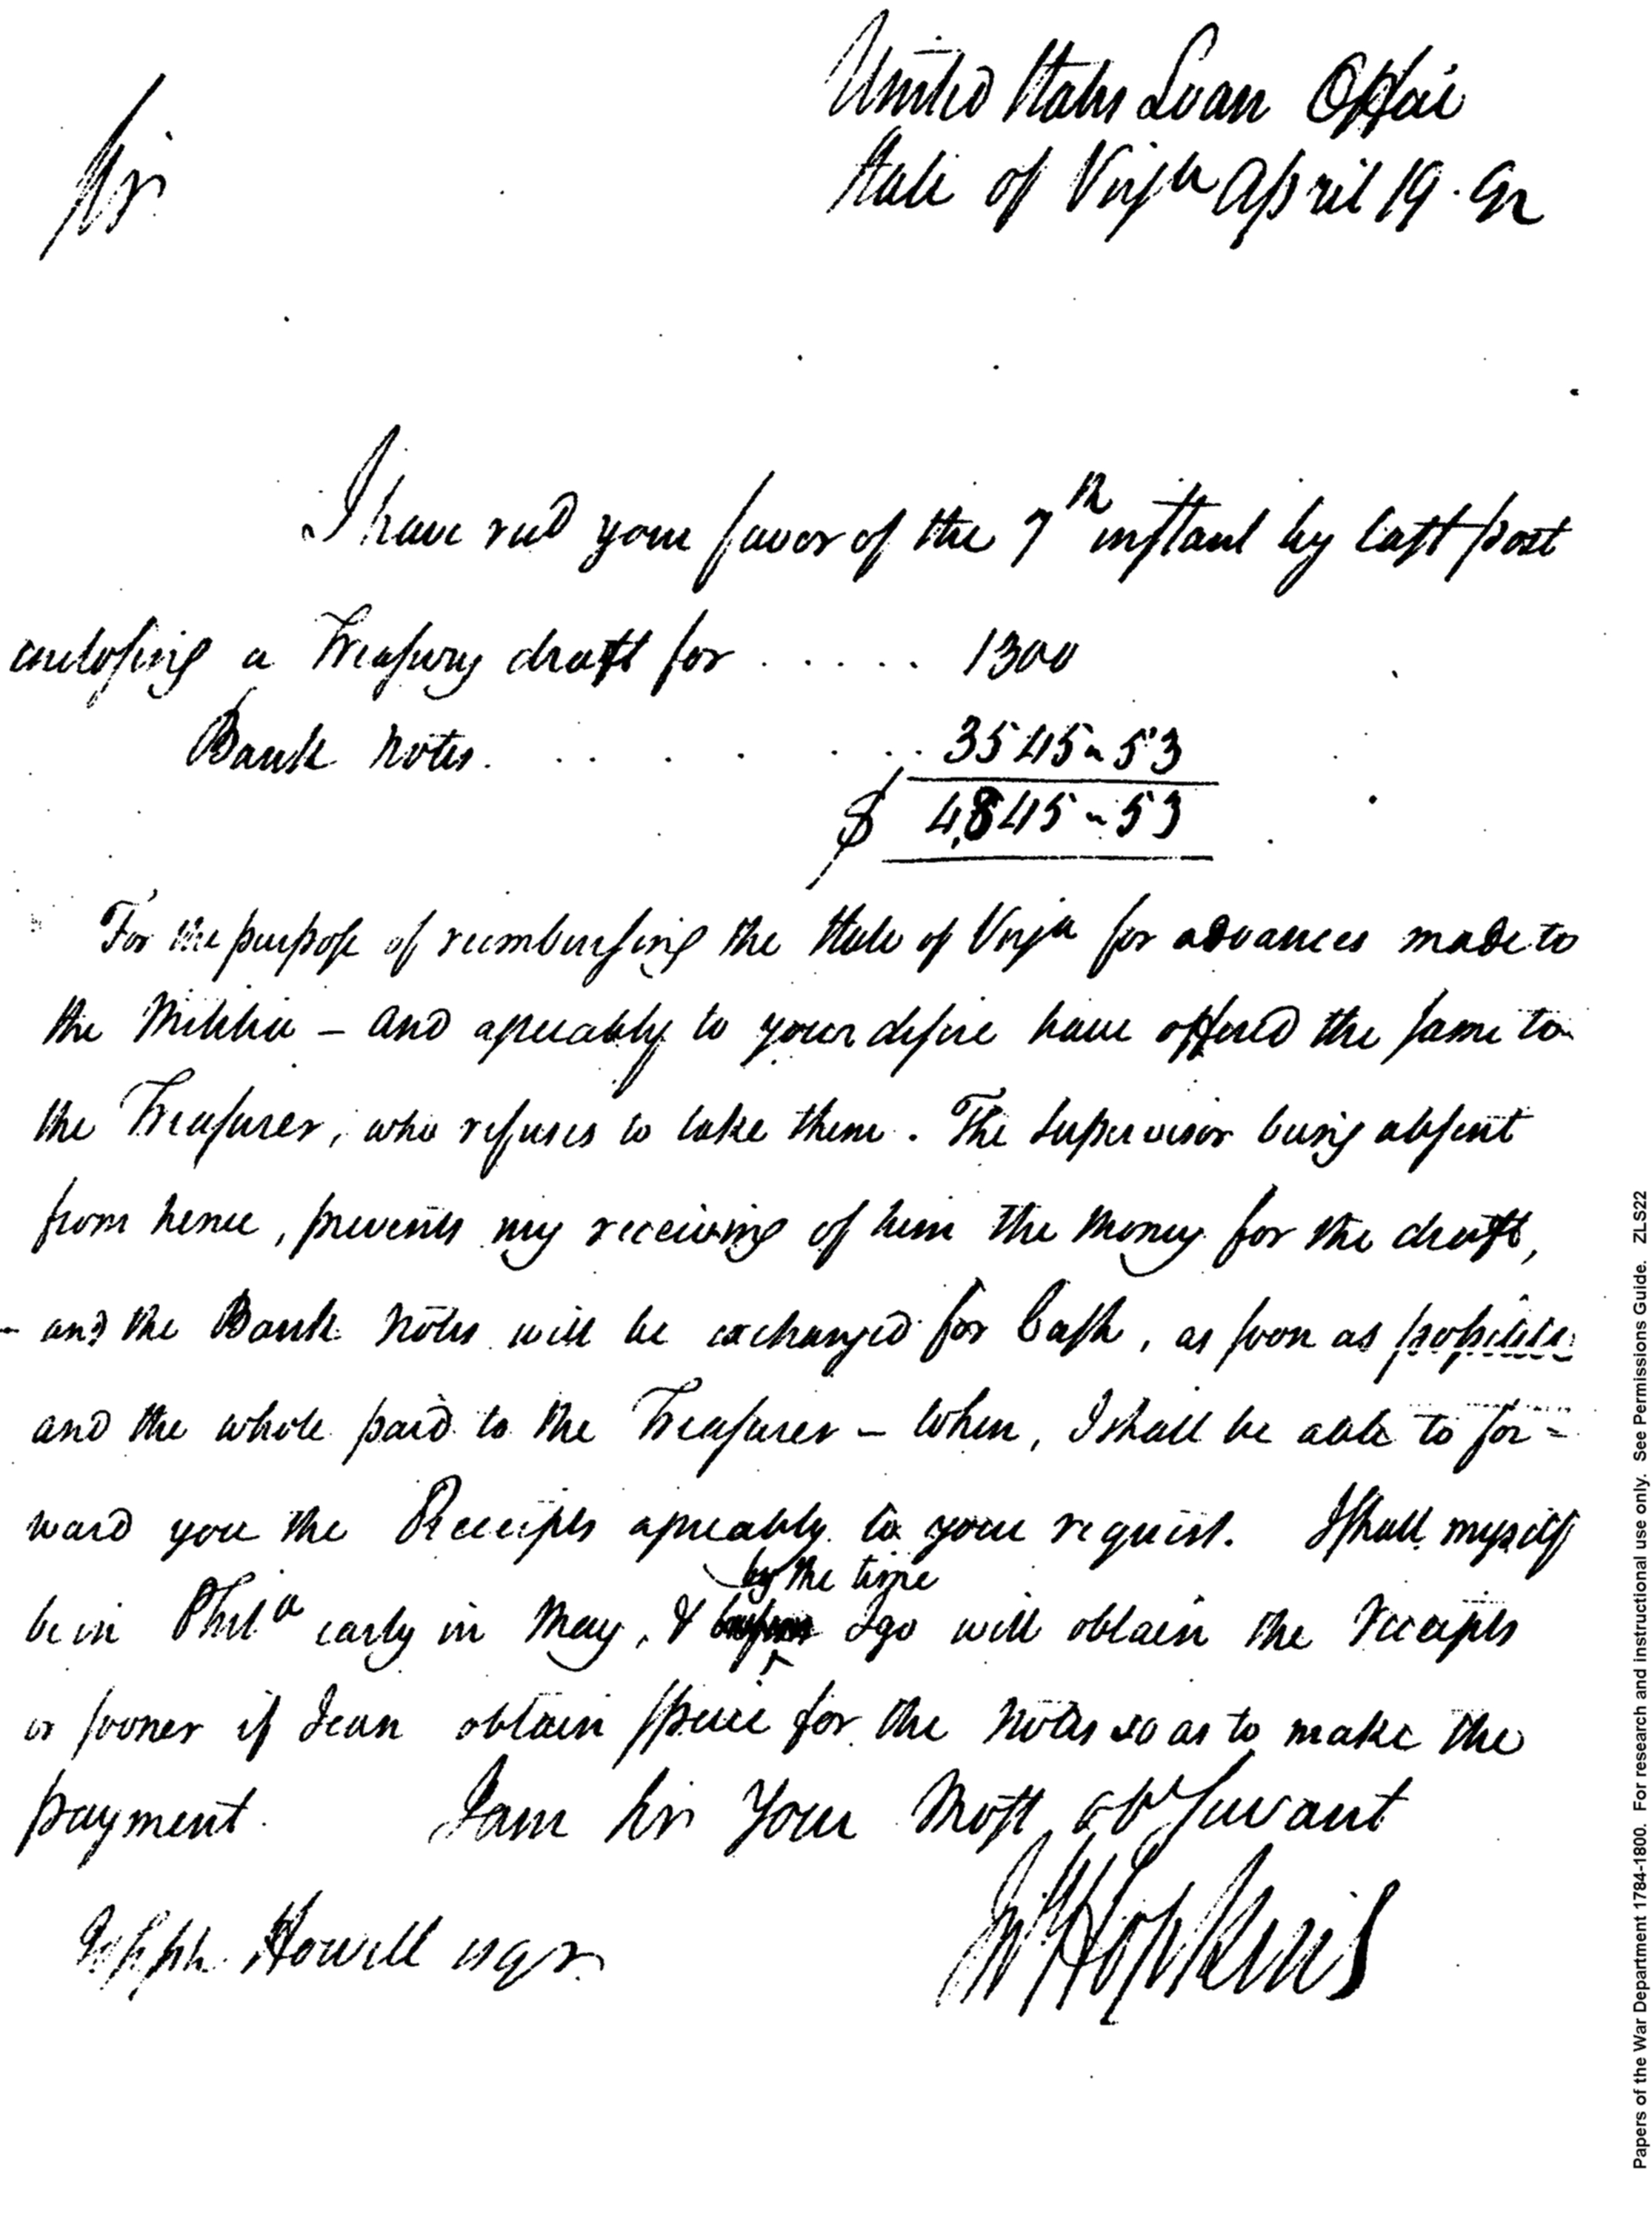 United States Loan Office
State of Virga April 19. 92
Sir
I have recd your favor of the 7th instant by last post
enclosing a Treasury draft for . . . . . 1300
Bank Notes. . . . . . . . 3545 " 53
$ 4,845 " 53
For the purpose of reimbursing the State of Virga for advances made to
the Militia – and agreeably to your desire have offered the same to
the Treasurer, who refuses to take them. The Supervisor being absent
from hence, prevents my receiving of him the Money for the draft,
- and the Bank Notes will be exchanged for Cash, as soon as possible
and the whole paid to the Treasurer – When, I shall be able to for=
ward you the Receipts agreeably to your request. I shall myself
by the time
be in Phila early in May, & I go will obtain the receipts
or sooner if I can obtain specie for the Notes so as to make the
payment. I am Sir Your Most obt Servant
Jno Hopkins
Joseph Howell esqr.
Papers of the War Department 1784-1800. For research and instructional use only. See Permissions Guide. ZLS22